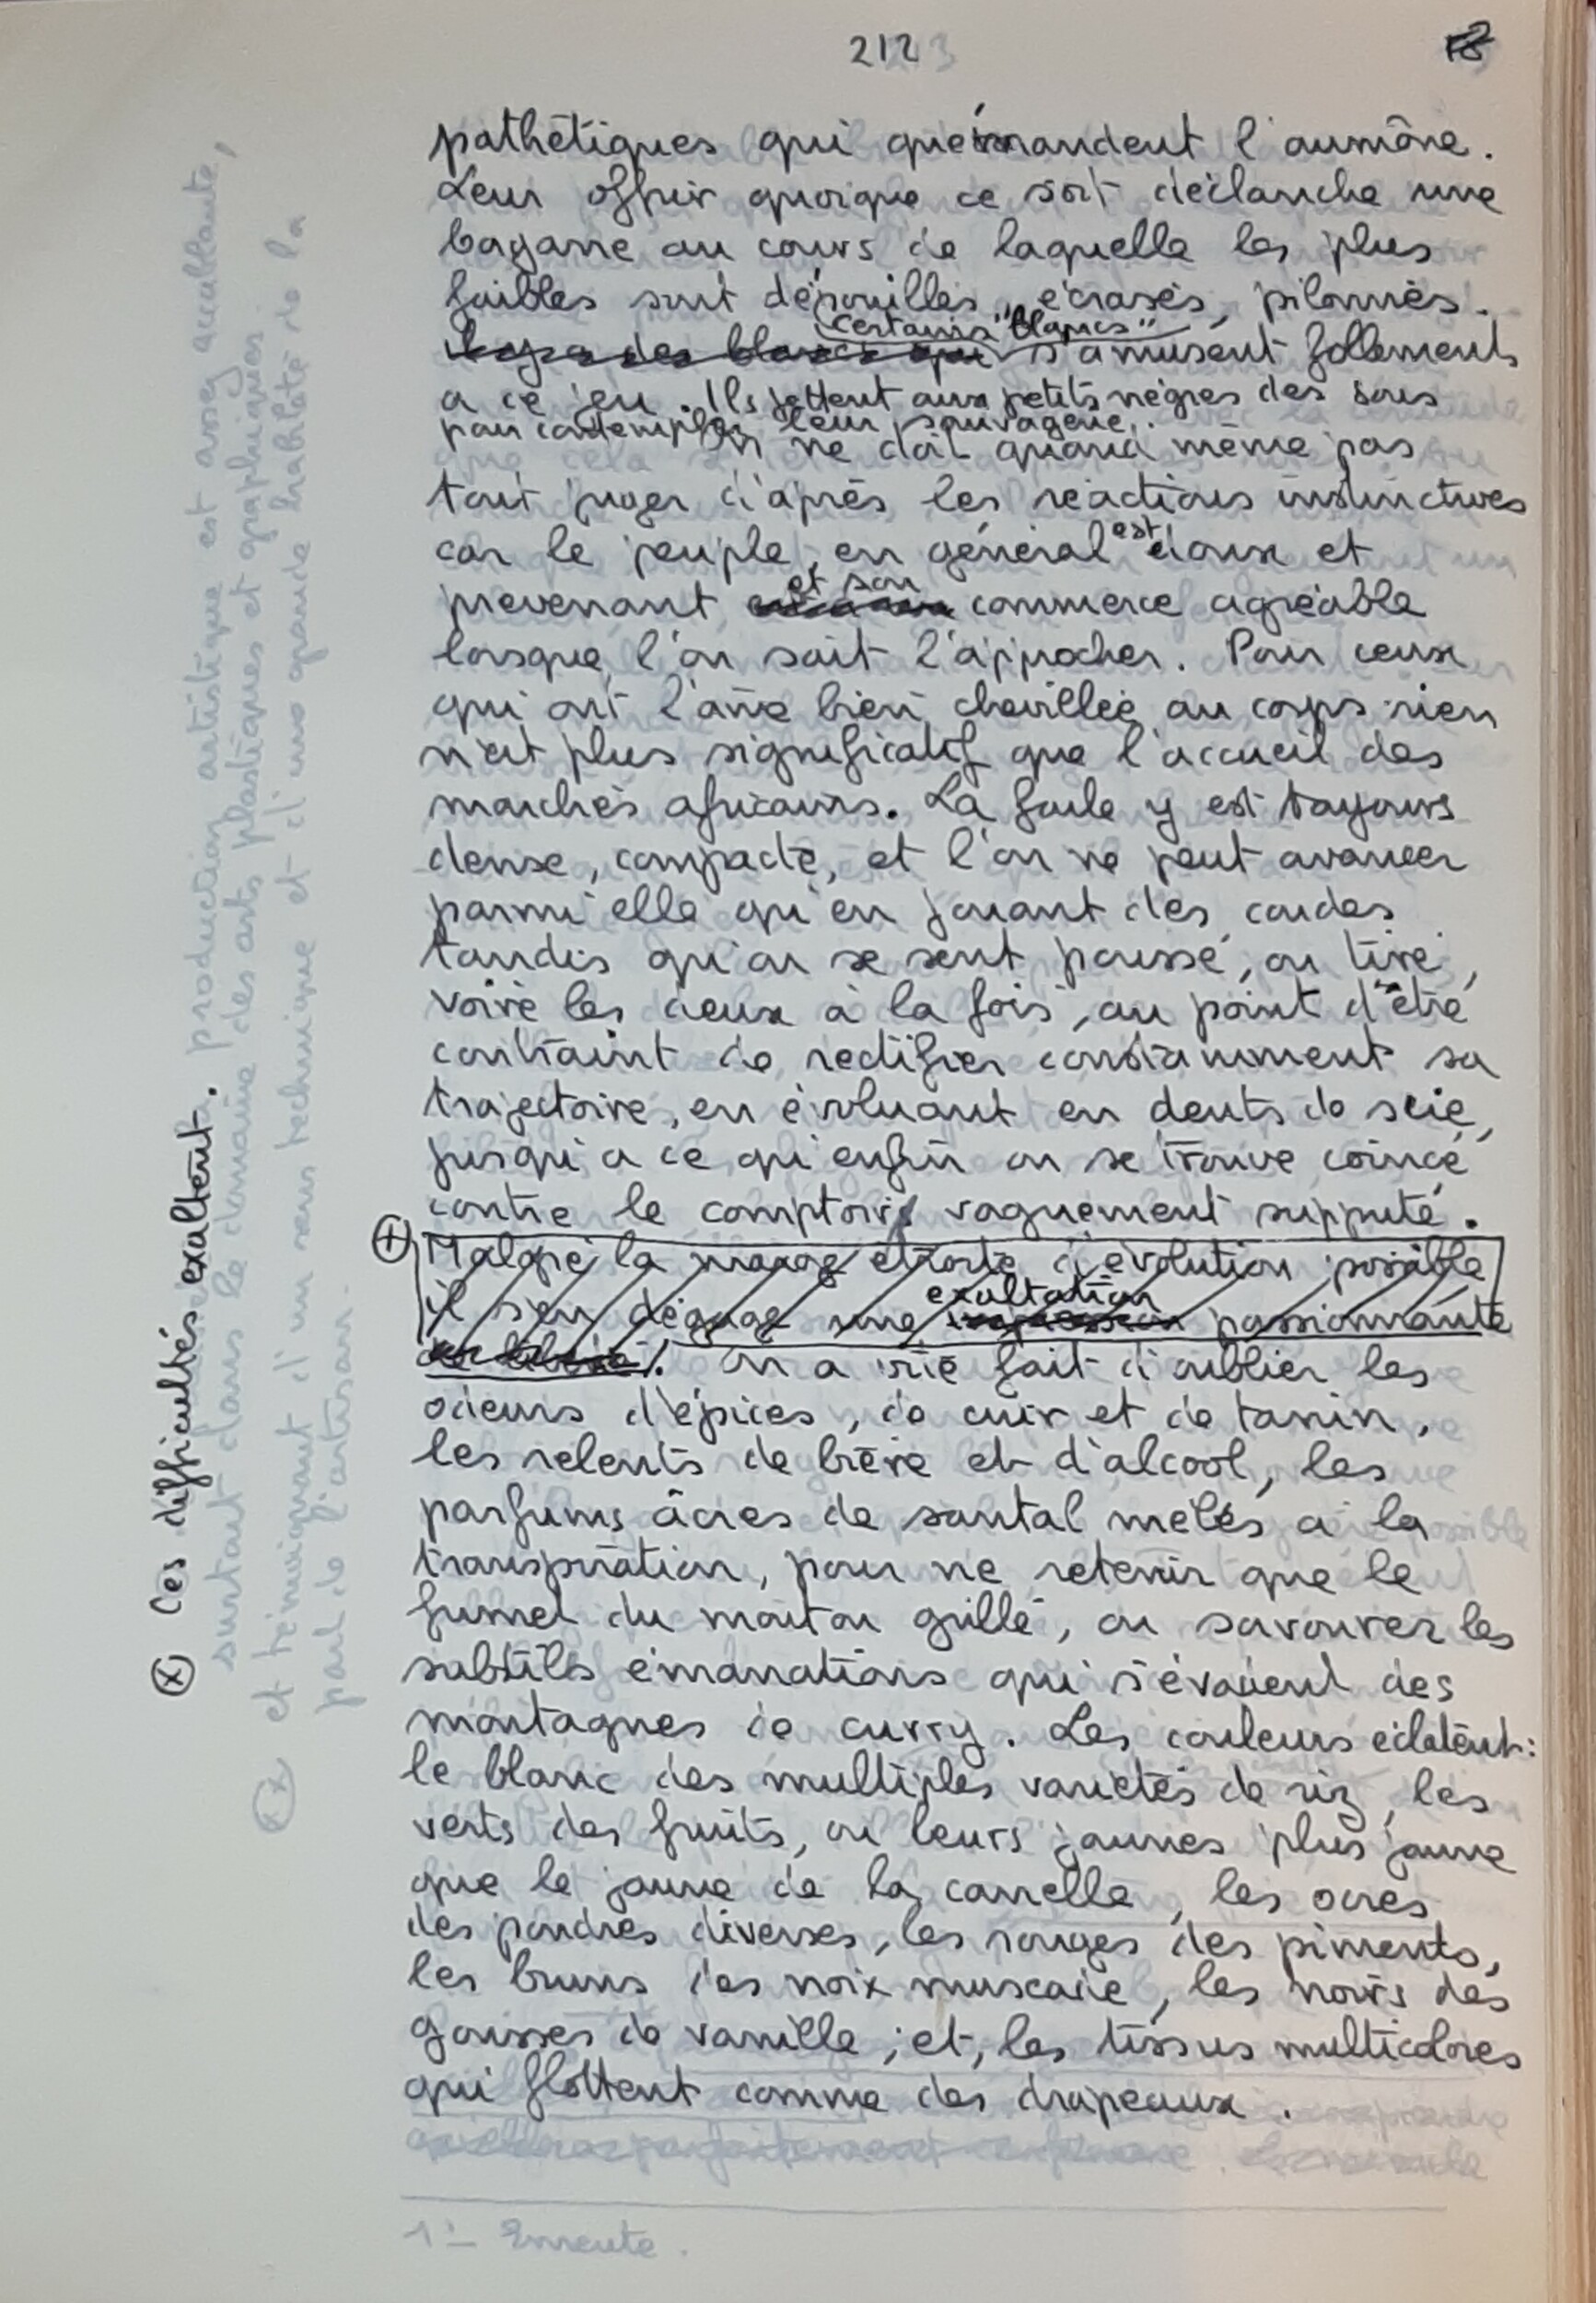 212
pathétiques qui quémandent l'aumône.
Leur offrir quoique ce soit déclanche une
bagarre au cours de laquelle les plus
faibles sont dépouillés, écrasés, pilonnés.
certains "blancs"
Il y a des blancs qui s'amusent follement
a ce jeu. Ils jettent aux petits nègres des sous
pour contempler leur sauvagerie.
On ne doit quand même pas
tout juger d'après les réactions instinctives
car le peuple, en général est doux et
et son
prévenant commerce agréable
lorsque l'on sait l'approcher. Pour ceux
qui ont l'âme bien chevillée au corps rien
n'est plus significatif que l'accueil des
marchés africains. La foule y est toujours
dense, compacte, et l'on ne peut avancer
parmi elle qu'en jouant des coudes
tandis qu'on se sent poussé, ou tiré,
voire les deux à la fois, au point d'être
contraint de rectifier constamment sa
trajectoire, en évoluant en dents de scie,
jusqu'a ce qu'enfin on se trouve coincé
contre le comptoir vaguement supputé.
(+) Malgré la marge étroite d'évolution possible
exaltation
il s'en dégage une passionnante
On a vite fait d'oublier les
odeurs d'épices, de cuir et de tanin,
les relents de bière et d'alcool, les
parfums âcres de santal mêlés a la
transpiration, pour ne retenir que le
fumet du mouton grillé, ou savourer les
subtils émanations qui s'évadent des
montagnes de curry. Les couleurs éclatent:
le blanc des multiples variétés de riz, les
verts des fruits, ou leurs jaunes plus jaune
que le jaune de la cannelle, les ocres
des poudres diverses, les rouges des piments,
les bruns des noix muscade, les noirs des
gousses de vanille ; et, les tissus multicolores
qui flottent comme des drapeaux.
(x) Ces difficultés exaltent.
production artistique est assez accablante,
surtout dans le domaine des arts plastiques et graphiques.
(xx) et témoignant d'un sens technique et d'une grande habileté de la
part de l'artisan.
1 - Emeute.